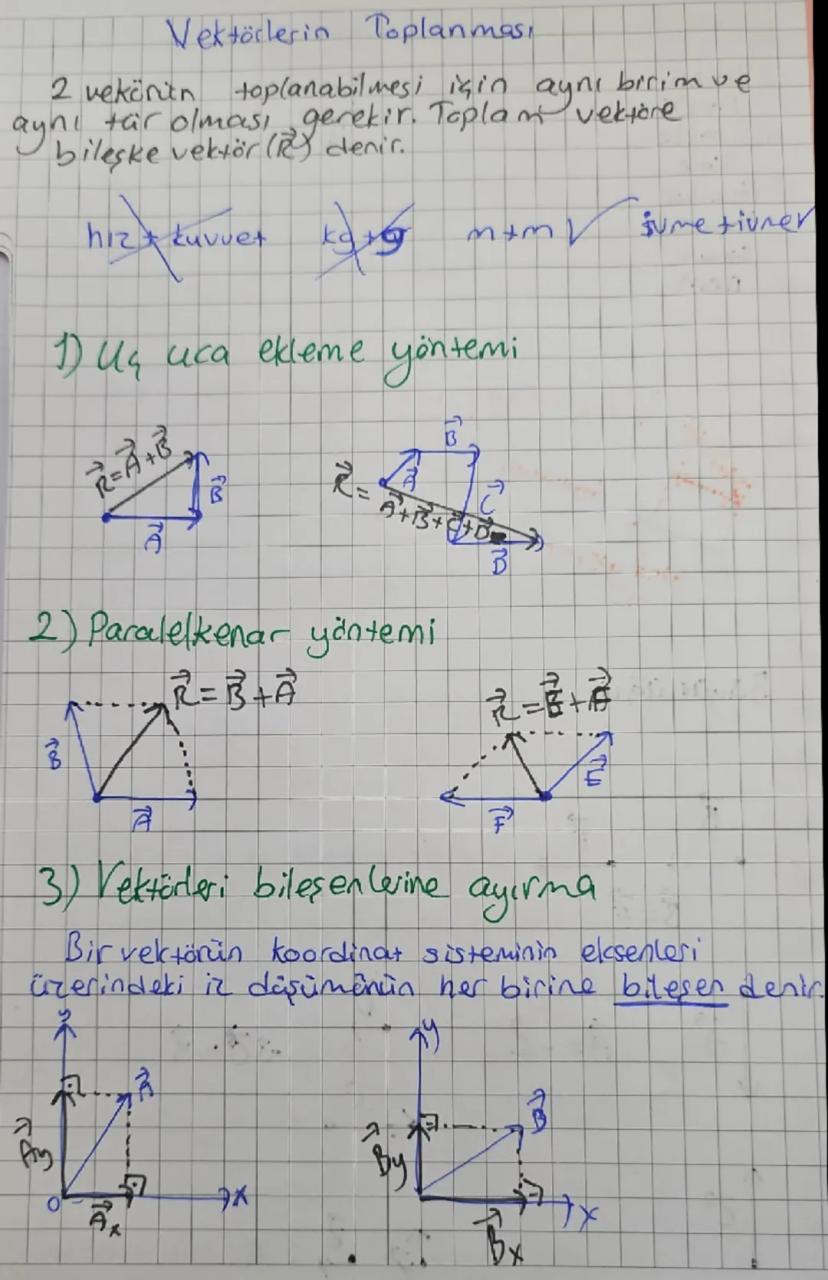 Vektörlerin Toplanması
2 vekönün toplanabilmesi için aynı birim ve
aynı tür olması gerekir. Toplam vektöre
bileşke vektör (R⃗) denir.
hız + kuvvet kg+g m+m √ ivme+ivme
1) Uç uca ekleme yöntemi
R⃗=A⃗+B⃗
B⃗
A⃗
B⃗
A⃗
R⃗=
A⃗+B⃗+C⃗+D
C⃗
D⃗
2) Paralelkenar yöntemi
R⃗=B⃗+A⃗
B⃗
A⃗
R⃗=E⃗+F⃗
E⃗
F⃗
3) Vektörleri bileşenlerine ayırma
Bir vektörün koordinat sisteminin eksenleri
üzerindeki iz düşümünün her birine bileşen denir.
y
A⃗
A⃗y
O
A⃗x
x
y
B⃗
B⃗y
B⃗x
x